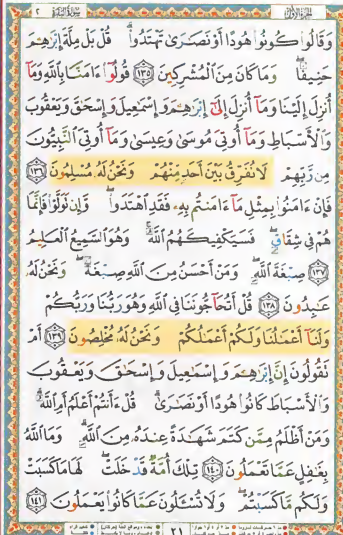 وَقَالُوا۟ كُونُوا۟ هُودًا أَوْ نَصَـٰرَىٰ تَهْتَدُوا۟ ۗ قُلْ بَلْ مِلَّةَ إِبْرَٰهِـۧمَ
حَنِيفًا ۖ وَمَا كَانَ مِنَ ٱلْمُشْرِكِينَ ١٣٥ قُولُوٓا۟ ءَامَنَّا بِٱللَّهِ وَمَآ
أُنزِلَ إِلَيْنَا وَمَآ أُنزِلَ إِلَىٰٓ إِبْرَٰهِـۧمَ وَإِسْمَـٰعِيلَ وَإِسْحَـٰقَ وَيَعْقُوبَ
وَٱلْأَسْبَاطِ وَمَآ أُوتِىَ مُوسَىٰ وَعِيسَىٰ وَمَآ أُوتِىَ ٱلنَّبِيُّونَ
مِن رَّبِّهِمْ لَا نُفَرِّقُ بَيْنَ أَحَدٍ مِّنْهُمْ وَنَحْنُ لَهُۥ مُسْلِمُونَ ١٣٦
فَإِنْ ءَامَنُوا۟ بِمِثْلِ مَآ ءَامَنتُم بِهِۦ فَقَدِ ٱهْتَدَوا۟ ۖ وَّإِن تَوَلَّوْا۟ فَإِنَّمَا
هُمْ فِى شِقَاقٍ ۖ فَسَيَكْفِيكَهُمُ ٱللَّهُ ۚ وَهُوَ ٱلسَّمِيعُ ٱلْعَلِيمُ
١٣٧ صِبْغَةَ ٱللَّهِ ۖ وَمَنْ أَحْسَنُ مِنَ ٱللَّهِ صِبْغَةً ۖ وَنَحْنُ لَهُۥ
عَـٰبِدُونَ ١٣٨ قُلْ أَتُحَآجُّونَنَا فِى ٱللَّهِ وَهُوَ رَبُّنَا وَرَبُّكُمْ
وَلَنَآ أَعْمَـٰلُنَا وَلَكُمْ أَعْمَـٰلُكُمْ وَنَحْنُ لَهُۥ مُخْلِصُونَ ١٣٩ أَمْ
تَقُولُونَ إِنَّ إِبْرَٰهِـۧمَ وَإِسْمَـٰعِيلَ وَإِسْحَـٰقَ وَيَعْقُوبَ
وَٱلْأَسْبَاطَ كَانُوا۟ هُودًا أَوْ نَصَـٰرَىٰ ۗ قُلْ ءَأَنتُمْ أَعْلَمُ أَمِ ٱللَّهُ ۗ
وَمَنْ أَظْلَمُ مِمَّن كَتَمَ شَهَـٰدَةً عِندَهُۥ مِنَ ٱللَّهِ ۗ وَمَا ٱللَّهُ
بِغَـٰفِلٍ عَمَّا تَعْمَلُونَ ١٤٠ تِلْكَ أُمَّةٌ قَدْ خَلَتْ ۖ لَهَا مَا كَسَبَتْ
وَلَكُم مَّا كَسَبْتُمْ ۖ وَلَا تُسْـَٔلُونَ عَمَّا كَانُوا۟ يَعْمَلُونَ ١٤١
٢١